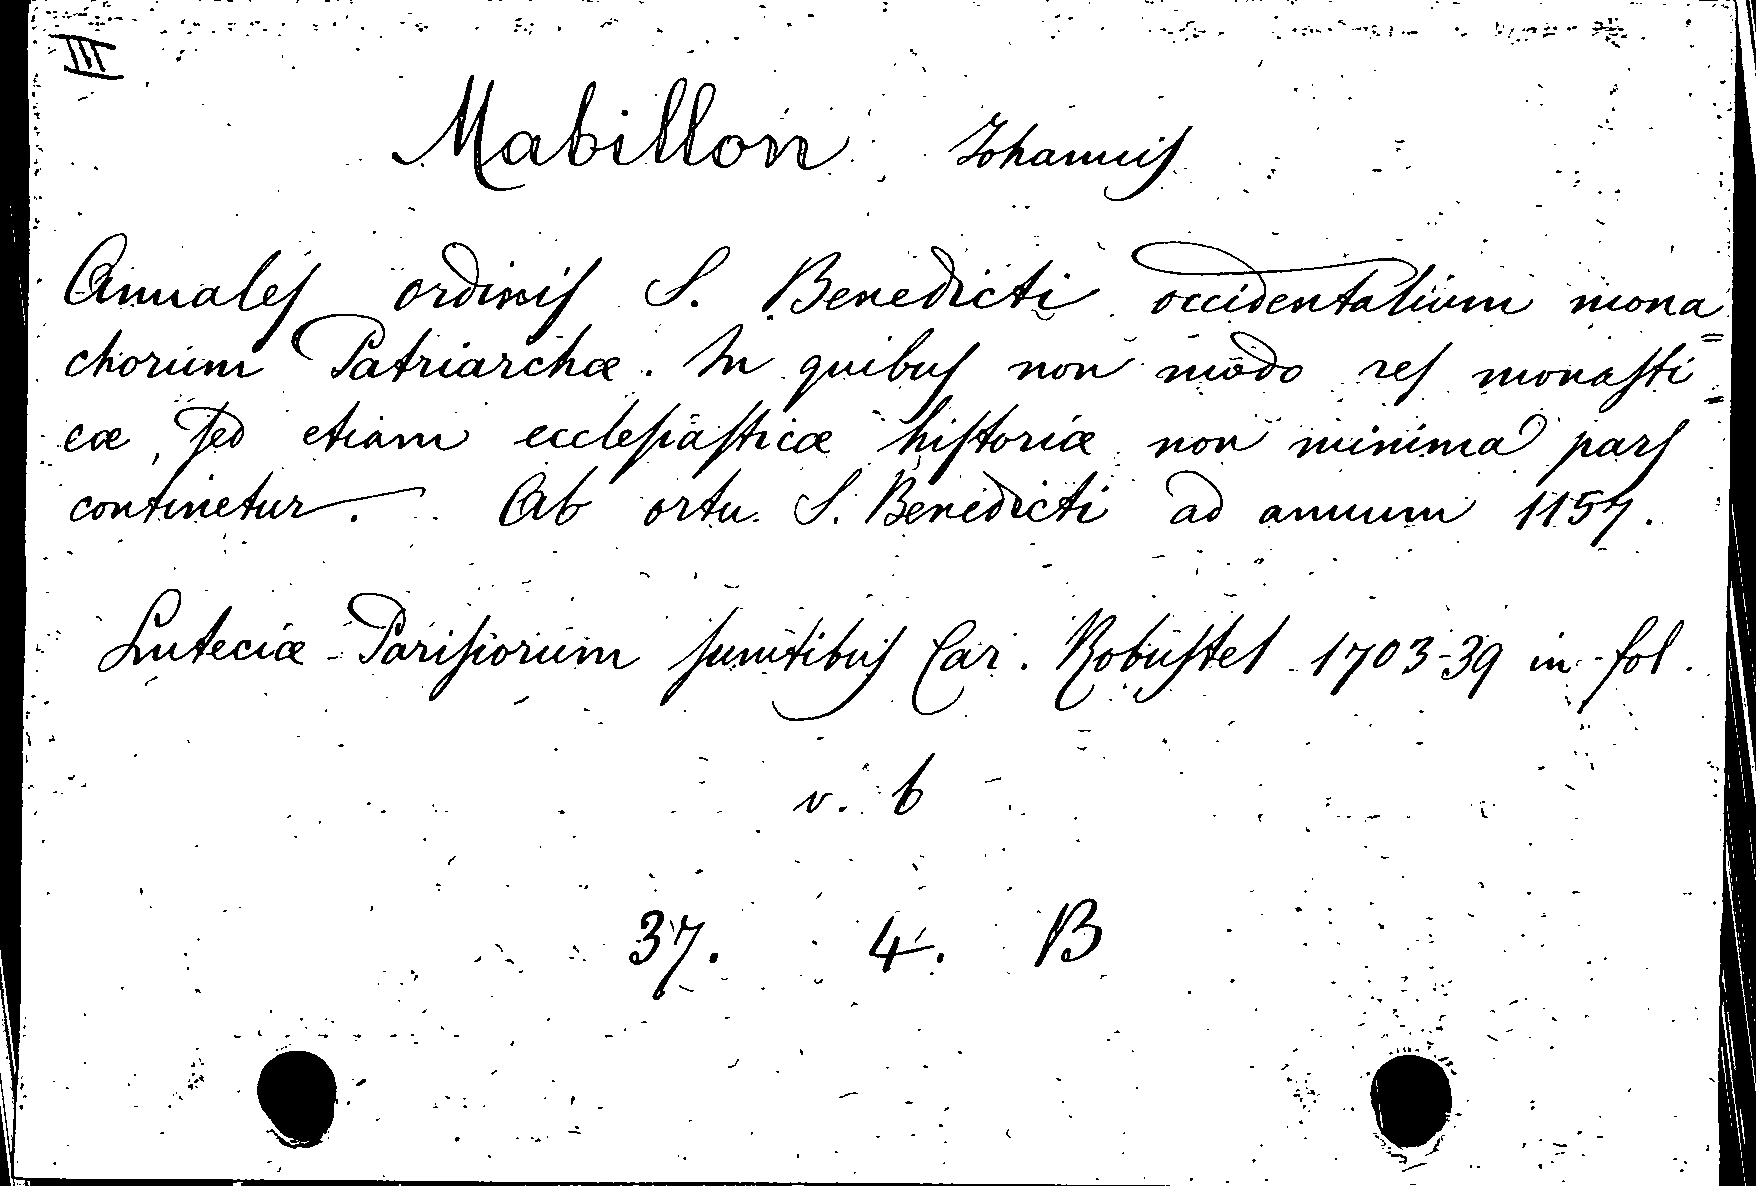 III
Mabillon Johannis
Annales ordinis S. Benedicti occidentalium mona=
chorum Patriarchæ. In quibus non modo res monasti=
cæ, sed etiam ecclesiasticæ historiæ non minima pars
continetur. Ab ortu S. Benedicti ad annum 1157.
Luteciæ-Parisiorum sumtibus Car. Robustel 1703-39 in fol.
v. 6
37. 4. B